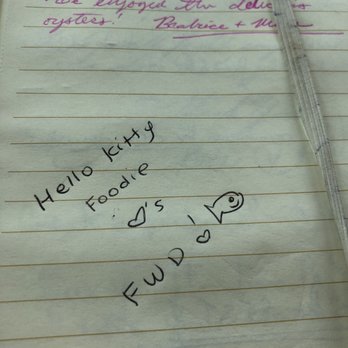 We enjoyed the delicious
oysters! Beatrice +
Hello Kitty
Foodie
♡'s
FWD!